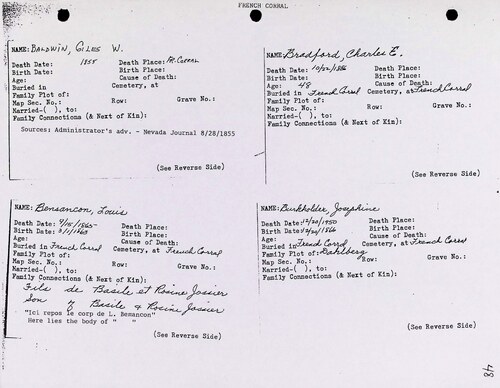 FRENCH CORRAL
NAME: BALDWIN, GILES W.
Death Date: 1855 Death Place: FR. CORRAL
Birth Date: Birth Place:
Age: Cause of Death:
Buried in Cemetery, at
Family Plot of:
Map Sec. No.: Row: Grave No.:
Married-( ), to:
Family Connections (& Next of Kin):
Sources: Administrator's adv. - Nevada Journal 8/28/1855
(See Reverse Side)
NAME: Bradford, Charles E.
Death Date: 10/22/1886 Death Place:
Birth Date: Birth Place:
Age: 48 Cause of Death:
Buried in French Corral Cemetery, at French Corral
Family Plot of:
Map Sec. No.: Row: Grave No.:
Married-( ), to:
Family Connections (& Next of Kin):
(See Reverse Side)
NAME: Bensancon, Louis
Death Date: 9/15/1865 Death Place:
Birth Date: Birth Place:
Age: Cause of Death:
Buried in French Corral Cemetery, at French Corral
Family Plot of:
Map Sec. No.: Row: Grave No.:
Married-( ), to:
Family Connections (& Next of Kin):
Fils de Basile et Rosine Jossier
Son of Basile & Rosine Jossier
"Ici repos le corp de L. Bemancon"
Here lies the body of " "
(See Reverse Side)
NAME: Burkholder, Josephine
Death Date: 12/20/1950 Death Place:
Birth Date: Birth Place:
Age: Cause of Death:
Buried in French Corral Cemetery, at French Corral
Family Plot of: Dahlberg
Map Sec. No.: Row: Grave No.:
Married-( ), to:
Family Connections (& Next of Kin):
(See Reverse Side)
48